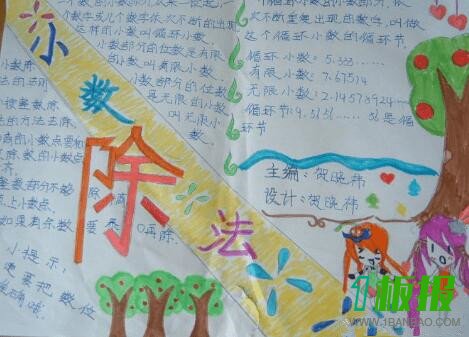 一个数的小数部分从某一位起，一
个数字或几个数字依次不断的出现
这样的小数叫循环小数。
小数部分的位数是有限
的小数，叫有限小数。
小数部分的位数
是无限的小数
叫无限小
数。
小数除法
小数除
的法则
按整数除
法的方法去除，
商的小数点要和
除数的小数点
齐。
整数部分不够
点上小数点。
如果有余数，要添0再除。
小提示，
定要把数位
准确哦。
循环小数的小数部分，依
次不断重复出现的数字，叫做
这个循环小数的循环节。
循环小数：5.333……
有限小数：7.67514
无限小数：2.14578924…
循环节：9.3131…… 31是循
环节
主编：贺晓祎
设计：贺晓祎
1板报
WWW.1BANBAO.COM